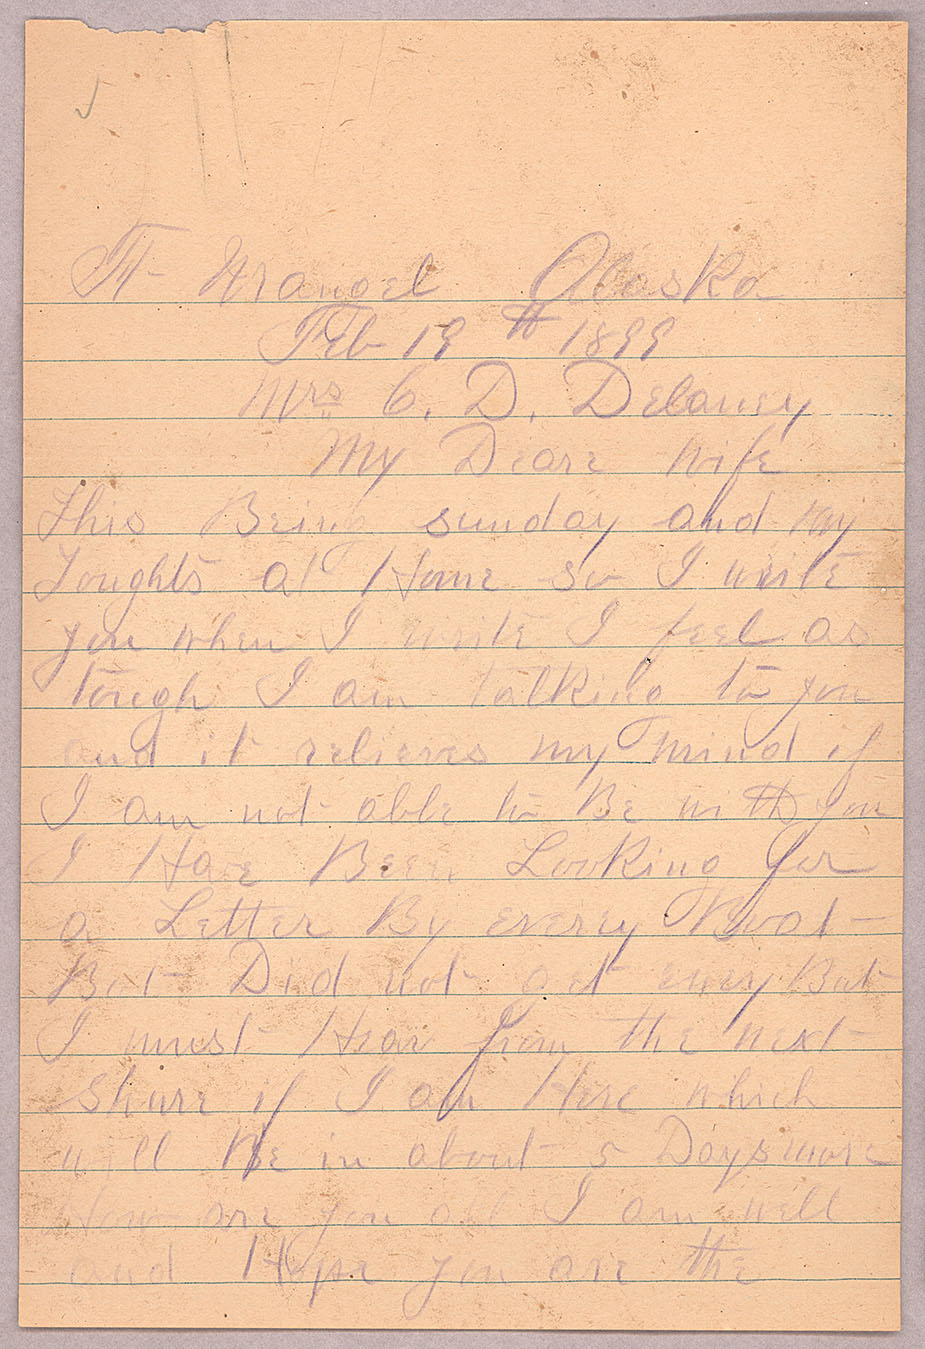 Ft Wrangel Alaska
Feb 19th 1899
Mrs C. D. Delaney
My Deare wife
This Being sunday and my
Toughts at Home so I write
you when I write I feel as
tough I am talking to you
and it relieves my mind if
I am not able to Be with you
I Have Been Looking for
a Letter By every Boat
But Did not get eney But
I must Hear from the next
shure if I am Here which
will Be in about 5 Days more
How are you all I am well
and Hope you are the